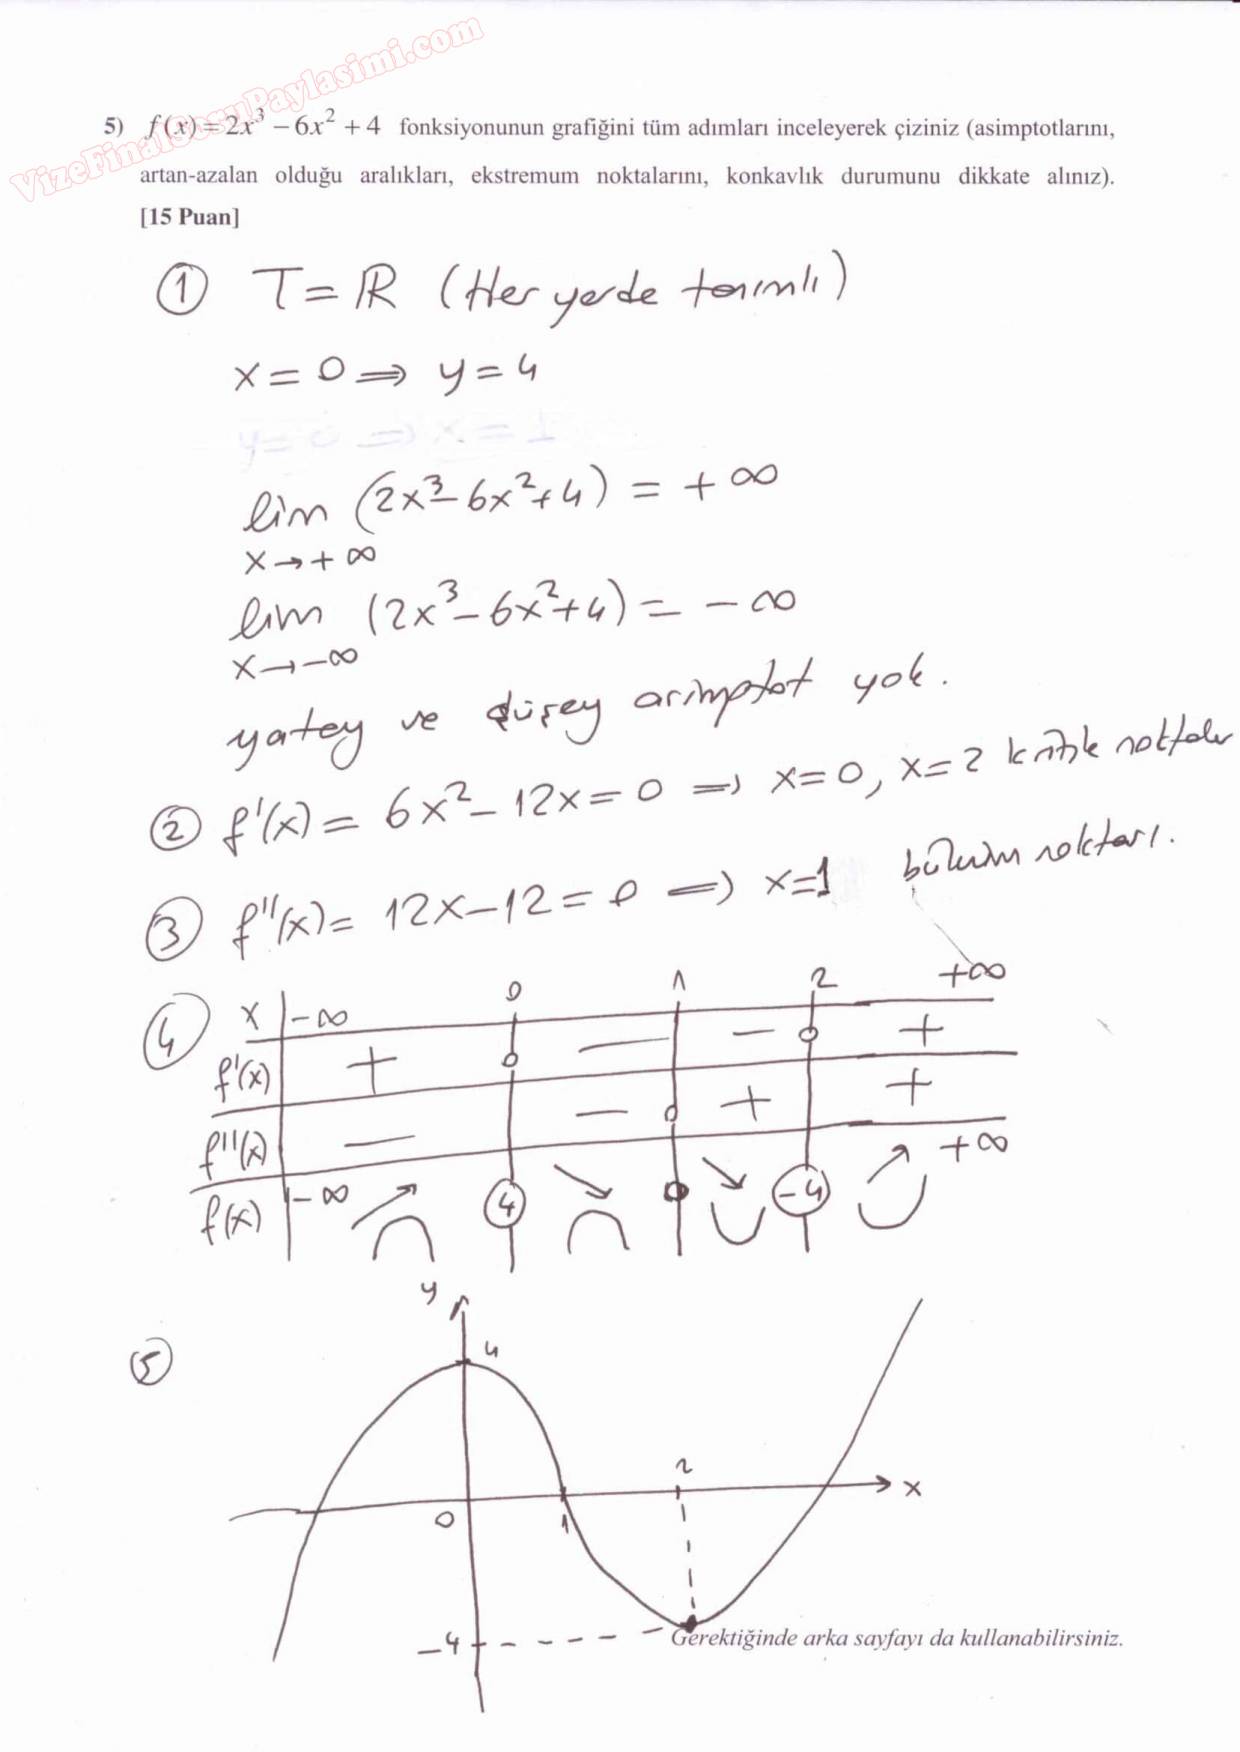 VizeFinalSoruPaylasimi.com
5) f(x) = 2x³ − 6x² + 4 fonksiyonunun grafiğini tüm adımları inceleyerek çiziniz (asimptotlarını,
artan-azalan olduğu aralıkları, ekstremum noktalarını, konkavlık durumunu dikkate alınız).
[15 Puan]
① T = ℝ (Her yerde tanımlı)
x = 0 ⇒ y = 4
y = 0 ⇒ x = 1
lim (2x³ − 6x² + 4) = +∞
x → +∞
lim (2x³ − 6x² + 4) = −∞
x → −∞
yatay ve düşey asimptot yok.
② f'(x) = 6x² − 12x = 0 ⇒ x = 0, x = 2 kritik noktalar
③ f''(x) = 12x − 12 = 0 ⇒ x = 1 büküm noktası.
④ x −∞ 0 1 2 +∞
f'(x) + − − +
f''(x) − − + +
f(x) −∞ 4 0 −4 +∞
⑤ y
4
2
x
0 1
−4
Gerektiğinde arka sayfayı da kullanabilirsiniz.